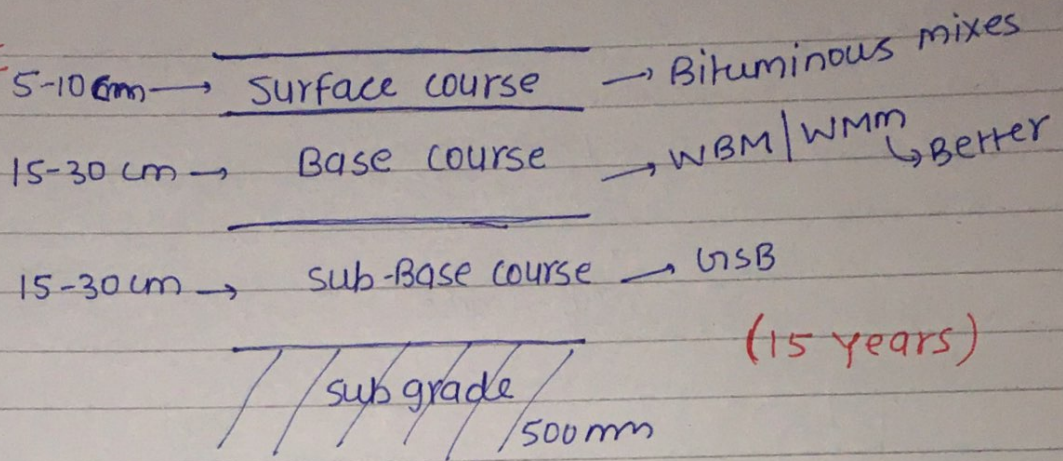 5-10 cm → Surface course → Bituminous mixes
15-30 cm → Base course → WBM/WMM
↳ Better
15-30 cm → Sub-Base course → GSB
(15 years)
Subgrade
500mm